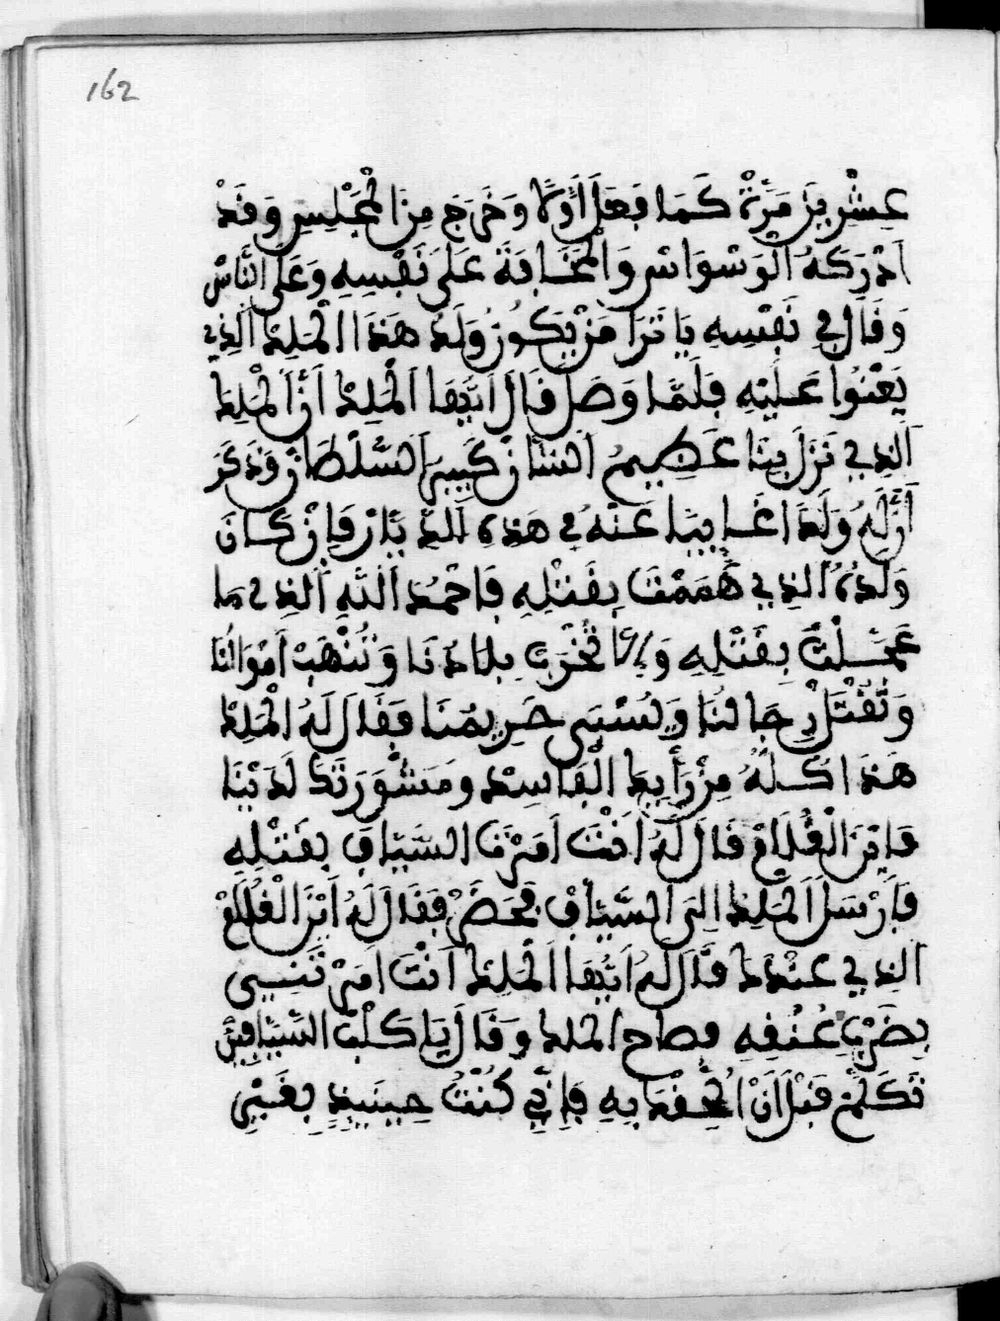 162
عِشْرِينَ مَرَّةً كَمَا فَعَلَ أَوَّلًا وَخَرَجَ مِنَ الْمَجْلِسِ وَقَدْ
ادْرَكَهُ الْوَسْوَاسُ وَالْمَخَافَةُ عَلَى نَفْسِهِ وَعَلَى النَّاسْ
وَقَالَ فِي نَفْسِهِ يَا تَرَا مَنْ يَكُونُ وَلَدُ هَذَا الْمَلِكْ الَّذِي
يَعْنُوا عَلَيْهِ فَلَمَّا وَصَلَ قَالَ أَيُّهَا الْمَلِكْ أَنَّ الْمَلِكْ
الَّذِي نَزَلَ بِنَا عَظِيمُ الشَّانْ كَبِيرُ السُّلْطَانْ وَذَكَرَ
أَنَّ لَهُ وَلَدَ اغَايِبًا عَنْهُ فِي هَذِهِ الدِّيَارْ فَإِنْ كَانَ
وَلَدُهُ الَّذِي هَمَمْتَ بِقَتْلِهِ فَاحْمَدْ اللَّهِ الَّذِي مَا
عَجَّلْتَ بِقَتْلِهِ وَإِلَّا تُخْرَبْ بِلَادُنَا وَتُنْهَبْ أَمْوَالُنَا
وَتُقْتَلْ رِجَالُنَا وَيُسْبَى حَرِيمُنَا فَقَالَ لَهُ الْمَلِكْ
هَذَا كُلُّهُ مِنْ رَأْيِكَ الْفَاسِدْ وَمَشْوَرَتَكَ لَدَيْنَا
فَايْنَ الْغُلَامْ قَالَ لَهُ انْتَ أَمَرْتَ السَّيَّافَ بِقَتْلِهِ
فَارْسَلَ الْمَلِكْ إِلَى السَّيَّافْ فَحَضَرْ فَقَالَ لَهُ أَيْنَ الْغُلَامْ
الَّذِي عِنْدَكَ قَالَ لَهُ أَيُّهَا الْمَلِكْ انْتَ امَرْتَنِي
بِضَرْبِ عُنُقِهِ فصَاح الملك وَقَالَ يَا كَلْبَ السَّيَّافِينْ
تَكَلَّمْ قَبْلَ أَنْ أُلْحِقْكَ بِهِ فَإِنِّي كُنْتُ حِينَيِذٍ بِغَيْرِ